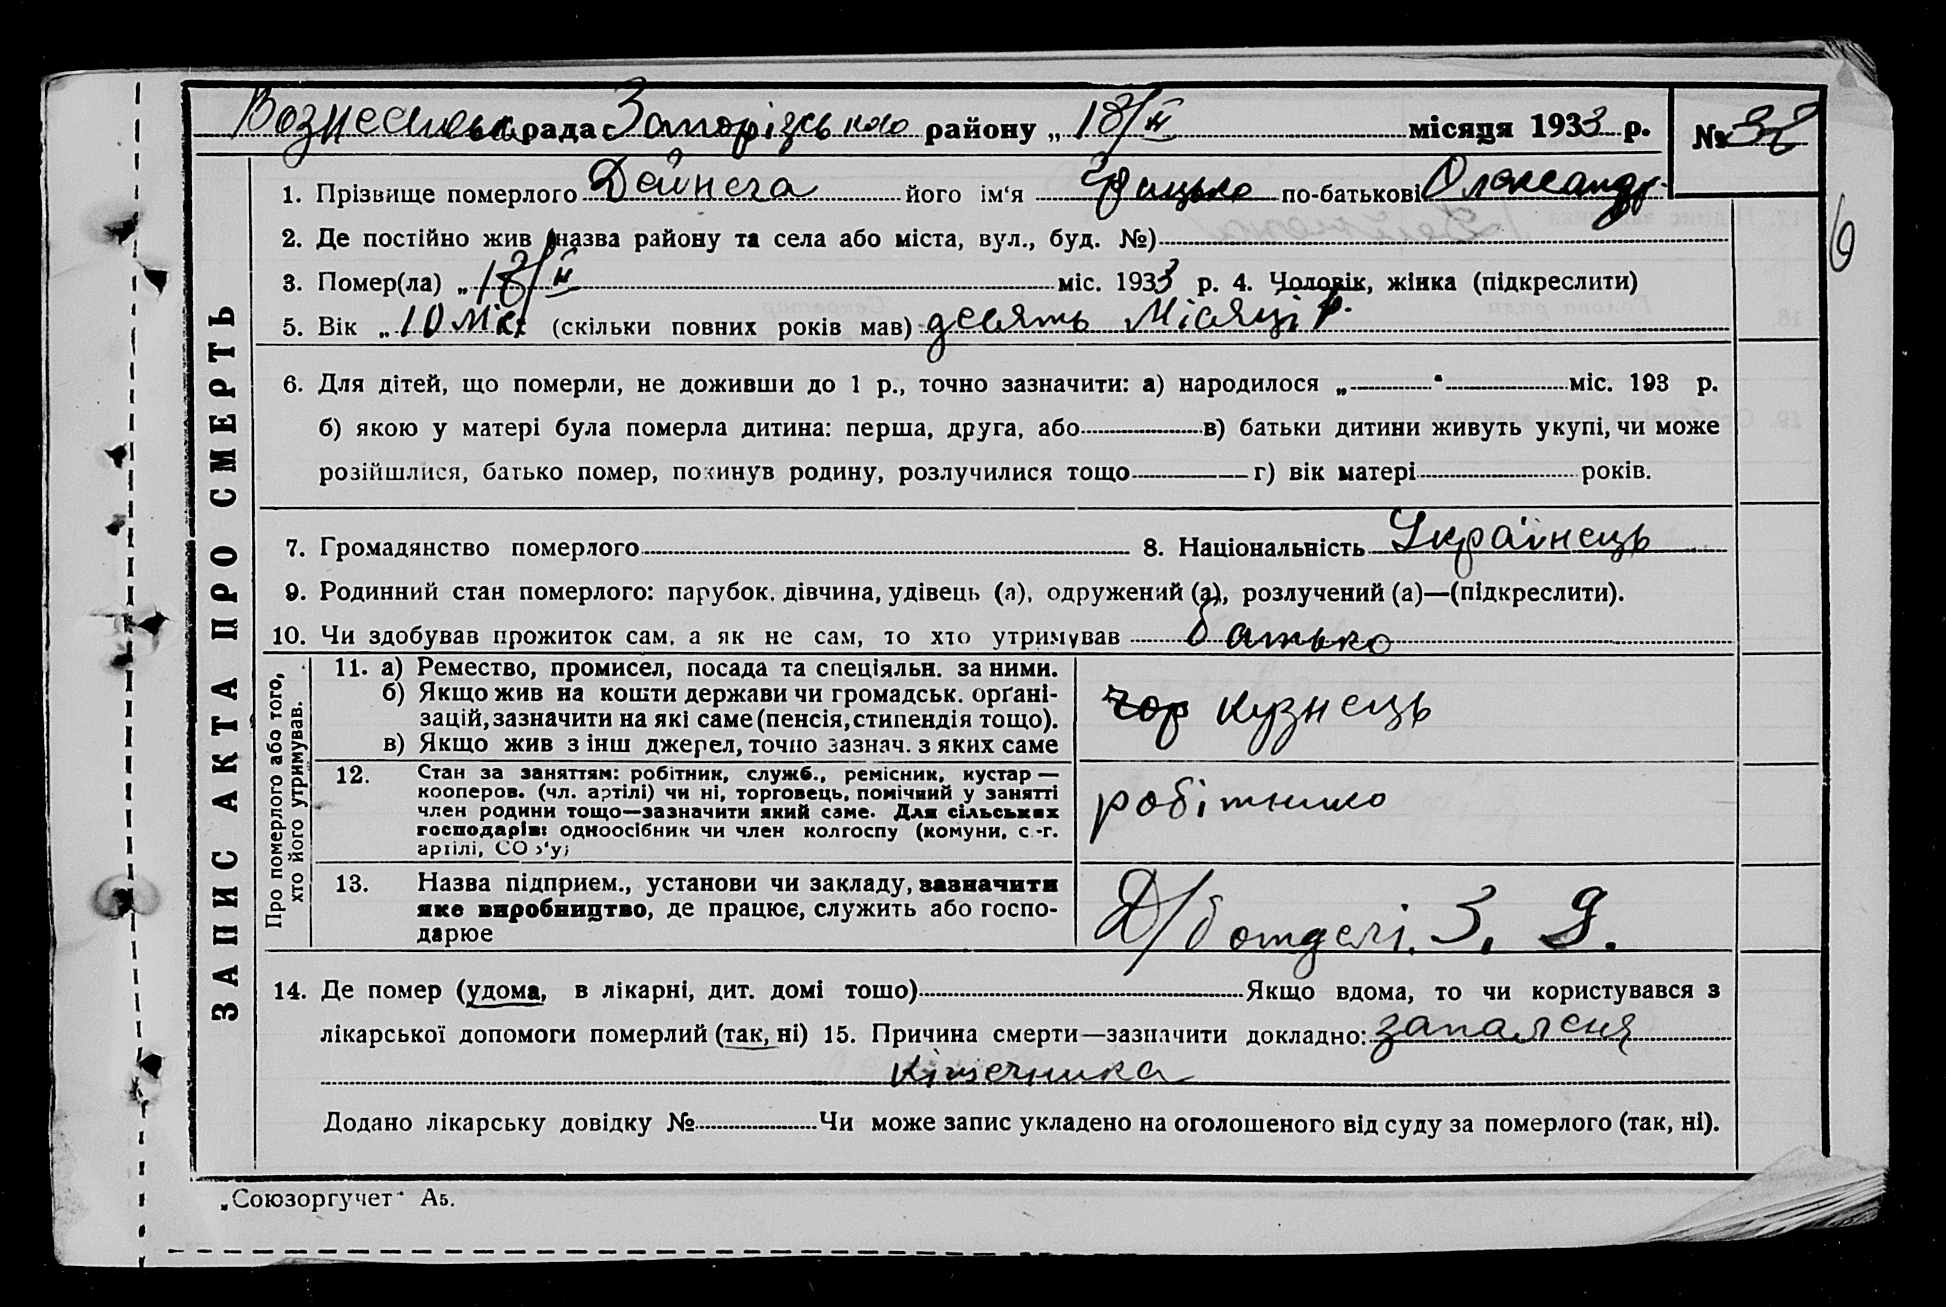 Вознесенська рада Запорізького району „ 18/II місяця 1933 р. № 38
1. Прізвище померлого Дейнега його ім‘я Грицько по-батькові Олександр.
2. Де постійно жив (назва району та села або міста, вул., буд. №)
3. Помер(ла) „ 18/II міс. 1933 р. 4. Чоловік, жінка (підкреслити)
5. Вік „ 10 міс (скільки повних років мав) десять місяців.
6. Для дітей, що померли, не доживши до 1 р., точно зазначити: а) народилося „ “ міс. 193 р.
б) якою у матері була померла дитина: перша, друга, або в) батьки дитини живуть укупі, чи може
розійшлися, батько помер, покинув родину, розлучилися тощо г) вік матері років.
7. Громадянство померлого 8. Національність Українець
9. Родинний стан померлого: парубок, дівчина, удівець (а), одружений (а), розлучений (а)—(підкреслити).
10. Чи здобував прожиток сам, а як не сам, то хто утримував батько
ЗАПИС АКТА ПРО СМЕРТЬ
Про померлого або того,
хто його утримував.
11. а) Ремество, промисел, посада та спеціяльн. за ними.
б) Якщо жив на кошти держави чи громадськ. орґані-
зацій, зазначити на які саме (пенсія, стипендія тощо).
в) Якщо жив з інш джерел, точно зазнач. з яких саме
чор кузнець
12. Стан за заняттям: робітник, служб., ремісник, кустар —
кооперов. (чл. артілі) чи ні, торговець, помічний у занятті
член родини тощо—зазначити який саме. Для сільських
господарів: одноосібник чи член колгоспу (комуни, с.-г.
артілі, СО
робітнико
13. Назва підприєм., установи чи закладу, зазначити
яке виробництво, де працює, служить або госпо-
дарює
14. Де помер (удома, в лікарні, дит. домі тошо) Якщо вдома, то чи користувався з
лікарської допомоги померлий (так, ні) 15. Причина смерти—зазначити докладно: запаленя
кішечника
Додано лікарську довідку № Чи може запис укладено на оголошеного від суду за померлого (так, ні).
„Союзоргучет“ А5.
6